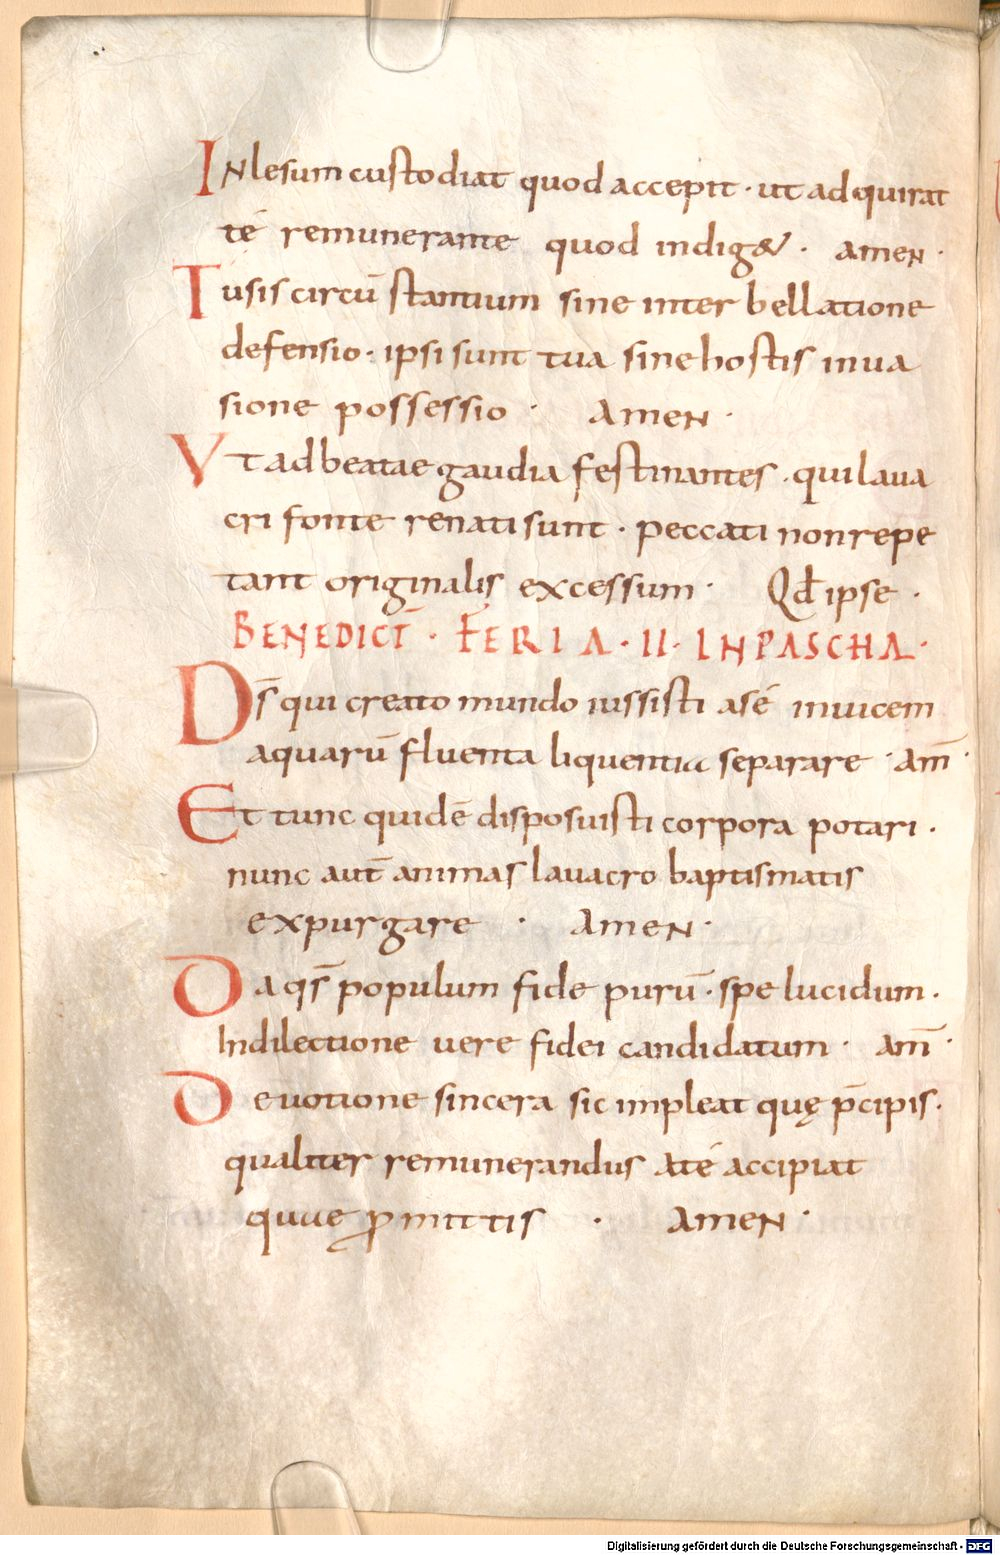 INlesum custodiat quod accepit · ut ad quirat
té remunerante quod indig& · amen ·
Tusis circū stantium sine inter bellatione
defensio · ipsi sunt tua sine hostis inua
sione possessio · amen ·
Vt ad beatae gaudia festinantes · qui laua
cri fonte renati sunt · peccati non repe
tant originalis excessum · Qđ ipse ·
BENEDICT̄ · FERIA · II · IN PASCHA ·
Ds̄ qui creato mundo iussisti asé inuicem
aquarū fluenta liquentia separare · am̄ ·
Et tunc quidē disposuisti corpora potari ·
nunc aut̄ animas lauacro baptismatis
expurgare · amen ·
Da qs̄ populum fide purū · spe lucidum ·
In dilectione uere fidei candidatum · am̄ ·
Deuotione sincera sic impleat quę p̄cipis ·
qualiter remunerandus até accipiat
quuę ꝓmittis · amen ·
Digitalisierung gefördert durch die Deutsche Forschungsgemeinschaft - DFG